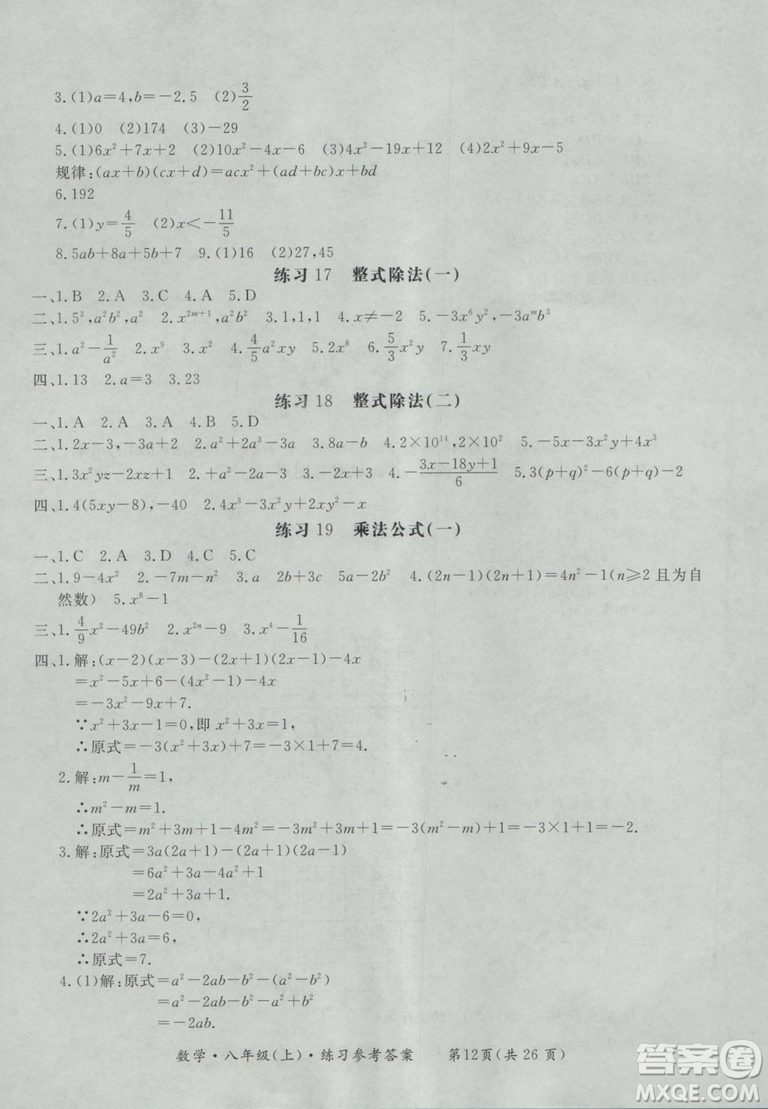 3.(1)a=4,b=-2.5 (2)3/2
4.(1)0 (2)174 (3)-29
5.(1)6x²+7x+2 (2)10x²-4x-6 (3)4x²-19x+12 (4)2x²+9x-5
规律:(ax+b)(cx+d)=acx²+(ad+bc)x+bd
6.192
7.(1)y=4/5 (2)x<-11/5
8.5ab+8a+5b+7 9.(1)16 (2)27,45
练习 17 整式除法(一)
一、1.B 2.A 3.C 4.A 5.D
二、1.5³,a²b²,a² 2.x²ᵐ⁺¹,a²b² 3.1,1,1 4.x≠-2 5.-3x⁶y²,-3aᵐb³
三、1.a²-1/a² 2.x⁹ 3.10a² 4.4/5a²xy 5.10x² 6.5/3x²y² 7.1/3xy
四、1.13 2.a=3 3.23
练习 18 整式除法(二)
一、1.A 2.A 3.C 4.C 5.D
二、1.2x-3,-3a+2 2.+a²-2a+2a³-3 3.8a-4b 4.2×10¹⁴,2×10² 5.-10x²-5x+4x³
三、1.3x²yz-2xz+1 2.+a²-2 3.-x+2 4.-(3x-18y+1)/6 5.3(p+q)-6(p+q)-2
四、1.4(5xy-8),-40 2.4x³-3x²+2x²-x
练习 19 乘法公式(一)
一、1.C 2.A 3.D 4.C 5.D
二、1.9-4x² 2.-7m-n² 3.a 2b+3c 5a-2b 4.(2n-1)(2n+1)=4n²-1(n≥2 且为自
然数) 5.x⁸-1
三、1.4/9x²-49b² 2.n²-9 3.x⁴-1/16
四、1.解:(x-2)(x-3)-(2x+1)(2x-1)-4x
=x²-5x+6-4x²+1-4x
=-3x²-9x+7.
∵x²+3x-1=0,即 x²+3x=1,
∴原式=-3(x²+3x)+7=-3×1+7=4.
2.解:m-1/m=1,
∴m²-m=1.
∴原式=m²+3m+1-4m²=-3m²+3m+1=-3(m²-m)+1=-3×1+1=-2.
3.解:原式=3a(2a+1)-(2a+1)(2a-1)
=6a²+3a-4a²+1
=2a²+3a+1.
∵2a²+3a-6=0,
∴2a²+3a=6,
∴原式=7.
4.(1)解:原式=a²-2ab-b²-(a²-b²)
=a²-2ab-b²-a²+b²
=-2ab.
数学·八年级(上)·练习参考答案 第12页(共 26 页)
答案圈
MXQE.COM